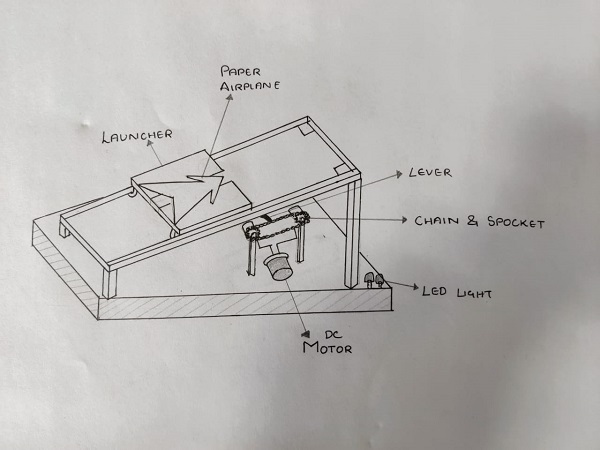 PAPER
AIRPLANE
LAUNCHER
LEVER
CHAIN & SPOCKET
LED LIGHT
DC
MOTOR